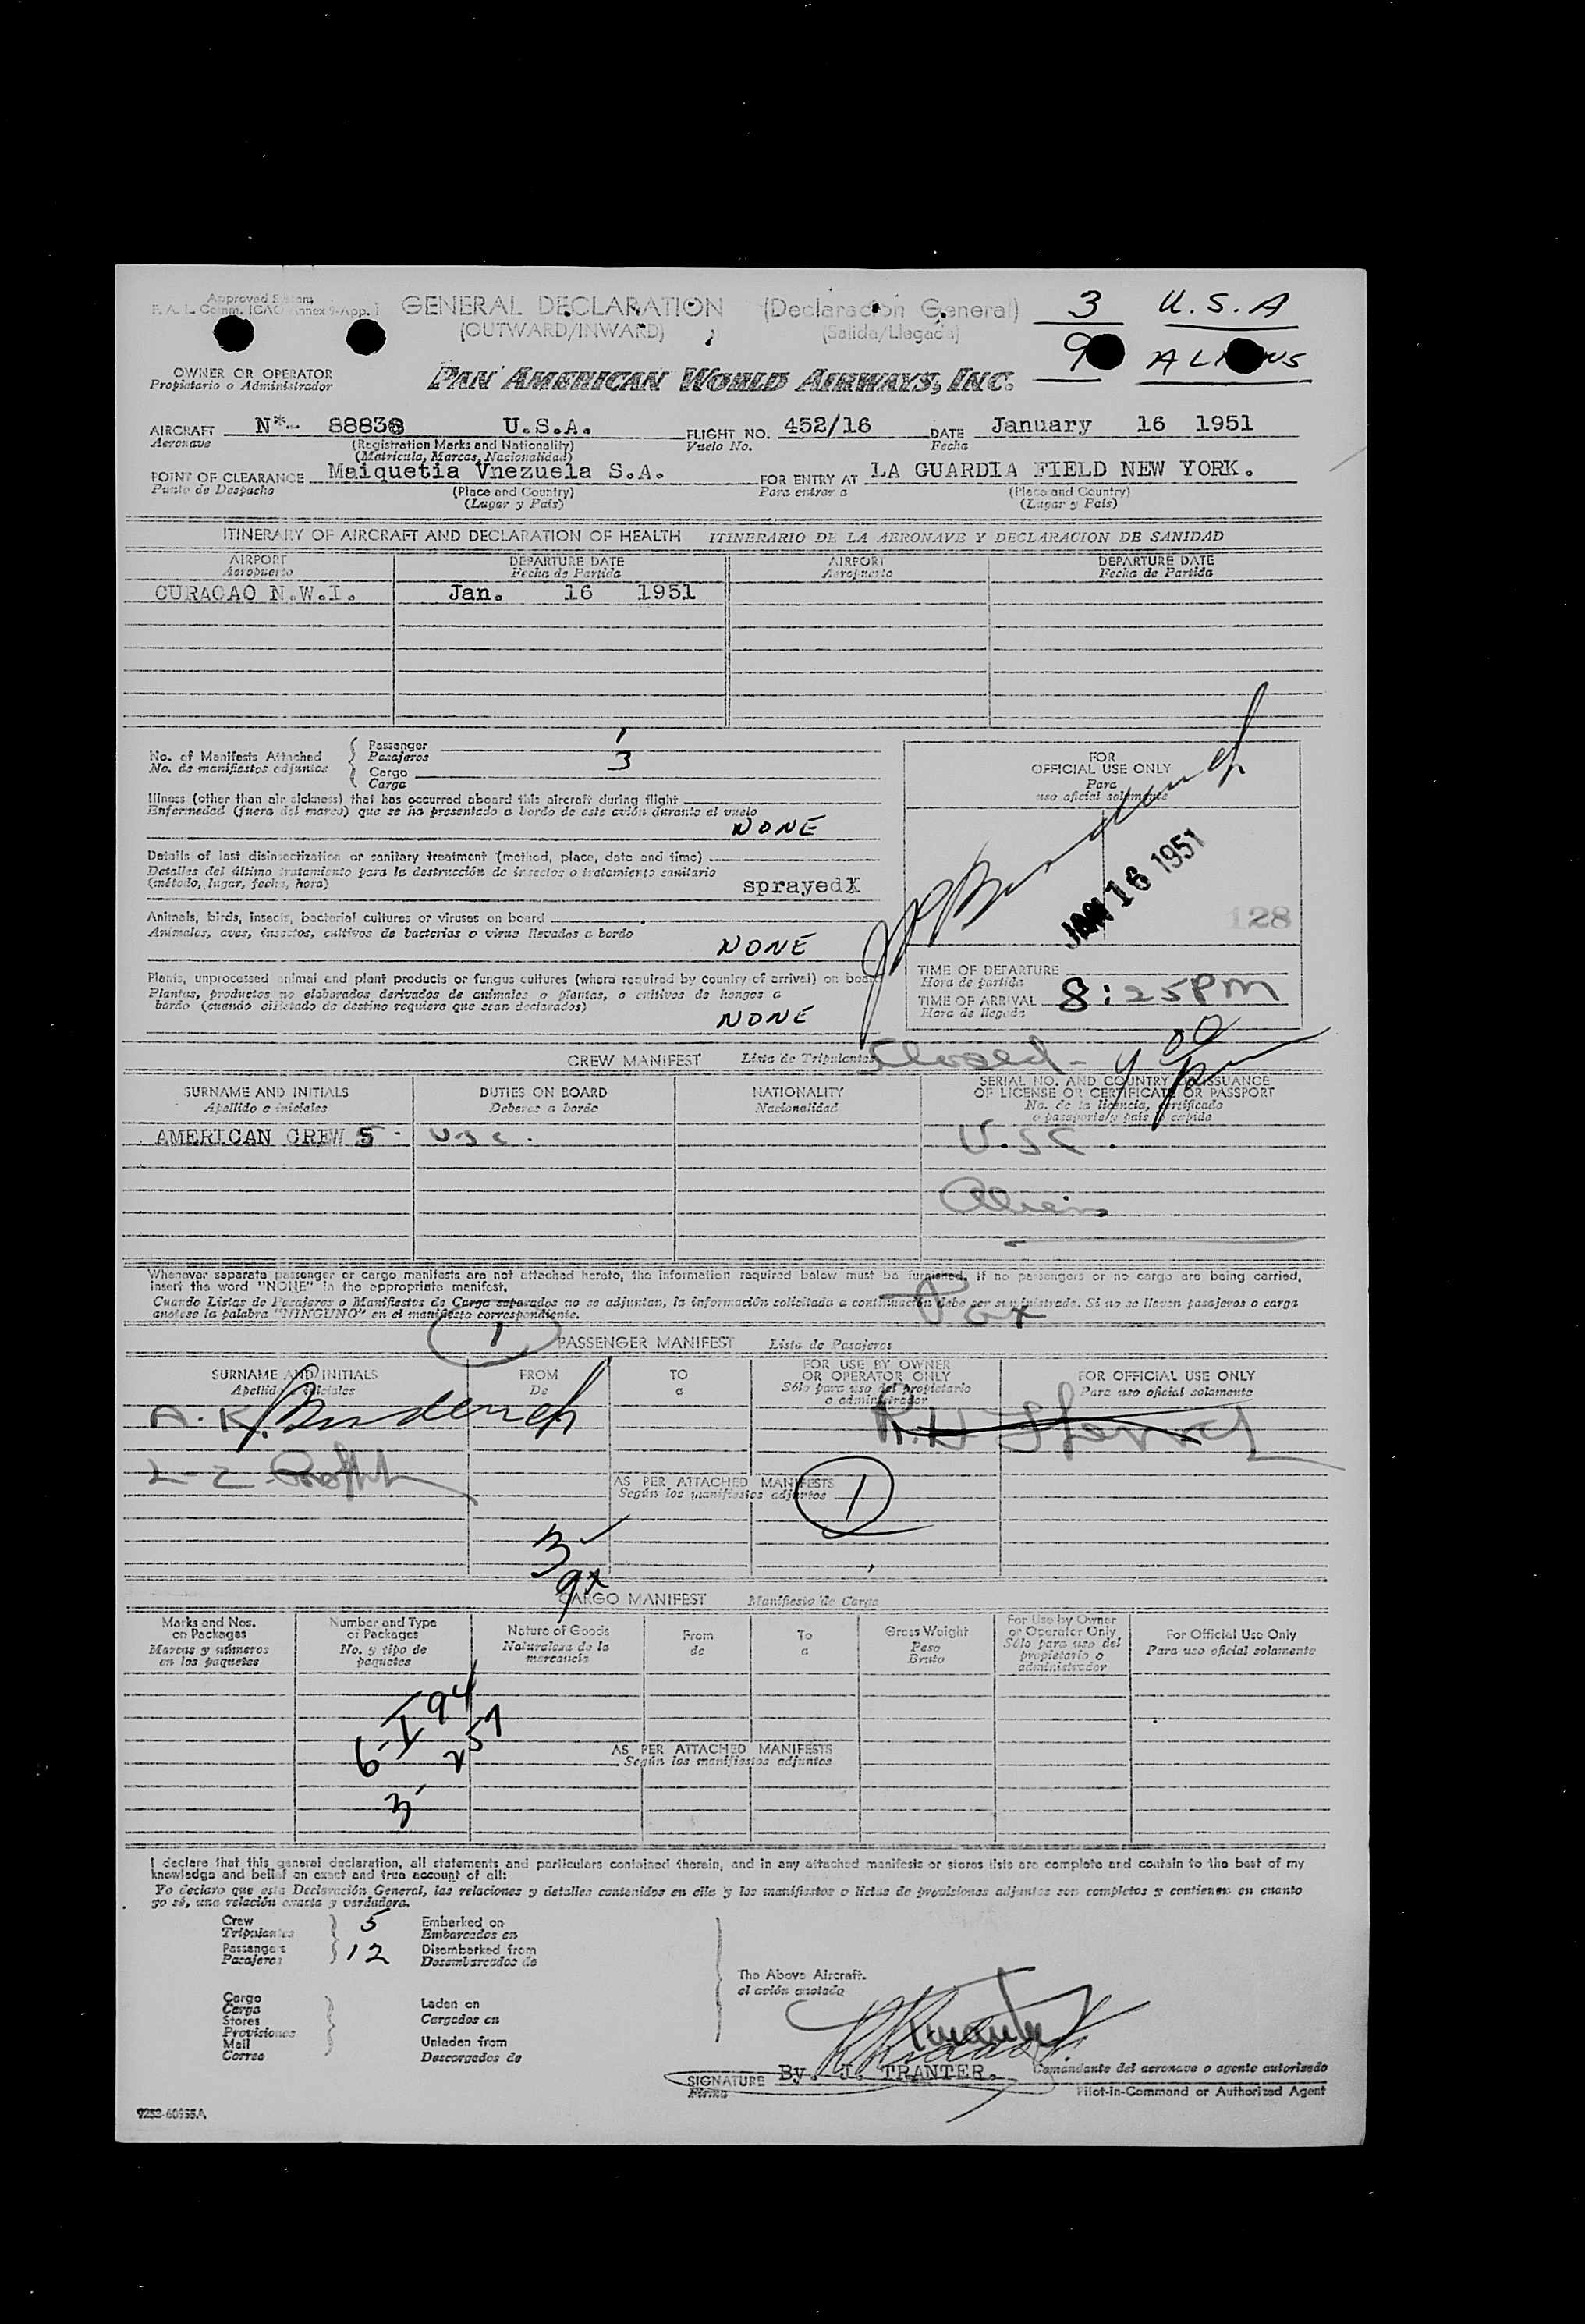 Approved System
F. A. L. Comm. ICAO Annex 9-App. 1
GENERAL DECLARATION (Declaración General)
(OUTWARD/INWARD) (Salida/Llegada)
3 U.S.A
9 ALIENS
OWNER OR OPERATOR
Propietario o Administrador
PAN AMERICAN WORLD AIRWAYS, INC.
AIRCRAFT N*-- 88838 U.S.A. FLIGHT NO. 452/16 DATE January 16 1951
Aeronave (Registration Marks and Nationality) Vuelo No. Fecha
(Matricula, Marcas, Nacionalidad)
POINT OF CLEARANCE Maiquetia Vnezuela S.A. FOR ENTRY AT LA GUARDIA FIELD NEW YORK.
Punto de Despacho (Place and Country) Para entrar a (Place and Country)
(Lugar y País) (Lugar y País)
ITINERARY OF AIRCRAFT AND DECLARATION OF HEALTH ITINERARIO DE LA AERONAVE Y DECLARACION DE SANIDAD
AIRPORT DEPARTURE DATE AIRPORT DEPARTURE DATE
Aeropuerto Fecha de Partida Aeropuerto Fecha de Partida
CURACAO N.W.I. Jan. 16 1951
No. of Manifests Attached Passenger 1
No. de manifiestos adjuntos Pasajeros 3
Cargo
Carga
FOR
OFFICIAL USE ONLY
Para
uso oficial solamente
Illness (other than air sickness) that has occurred aboard this aircraft during flight
Enfermedad (fuera del mareo) que se ha presentado a bordo de este avión durante el vuelo
NONE
Details of last disinsectization or sanitary treatment (method, place, date and time)
Detalles del último tratamiento para la destrucción de insectos o tratamiento sanitario
(método, lugar, fecha, hora) sprayedX
JAN 16 1951
128
Animals, birds, insects, bacterial cultures or viruses on board
Animales, aves, insectos, cultivos de bacterias o virus llevados a bordo
NONE
Plants, unprocessed animal and plant products or fungus cultures (where required by country of arrival) on board
Plantas, productos no elaborados derivados de animales o plantas, o cultivos de hongos a
bordo (cuando el Estado de destino requiera que sean declarados)
NONE
TIME OF DEPARTURE
Hora de partida
TIME OF ARRIVAL 8:25PM
Hora de llegada
CREW MANIFEST Lista de Tripulantes
SURNAME AND INITIALS DUTIES ON BOARD NATIONALITY SERIAL NO. AND COUNTRY OF ISSUANCE
Apellido e iniciales Deberes a bordo Nacionalidad OF LICENSE OR CERTIFICATE OR PASSPORT
No. de la licencia, certificado
o pasaporte y país o expido
AMERICAN CREW 5 - U.S.C. U.S.C.
Aliens
Whenever separate passenger or cargo manifests are not attached hereto, the information required below must be furnished. If no passengers or no cargo are being carried,
insert the word "NONE" in the appropriate manifest.
Cuando Listas de Pasajeros o Manifiestos de Carga separados no se adjuntan, la información solicitada a continuación debe ser suministrada. Si no se llevan pasajeros o carga
anótese la palabra "NINGUNO" en el manifiesto correspondiente.
Pax
1 PASSENGER MANIFEST Lista de Pasajeros
SURNAME AND INITIALS FROM TO FOR USE BY OWNER FOR OFFICIAL USE ONLY
Apellido e iniciales De a OR OPERATOR ONLY Para uso oficial solamente
Sólo para uso del propietario
o administrador
A. K.
AS PER ATTACHED MANIFESTS 1
Según los manifiestos adjuntos
3
9x
CARGO MANIFEST Manifiesto de Carga
Marks and Nos. Number and Type Nature of Goods From To Gross Weight For Use by Owner For Official Use Only
on Packages of Packages Naturaleza de la de a Peso or Operator Only Para uso oficial solamente
Marcas y números No. y tipo de mercancía Bruto Sólo para uso del
en los paquetes paquetes propietario o
administrador
6-I94
257
AS PER ATTACHED MANIFESTS
Según los manifiestos adjuntos
3
I declare that this general declaration, all statements and particulars contained therein, and in any attached manifests or stores lists are complete and contain to the best of my
knowledge and belief an exact and true account of all:
Yo declaro que esta Declaración General, las relaciones y detalles contenidos en ella y los manifiestos o listas de provisiones adjuntas son completos y contienen en cuanto
yo sé, una relación exacta y verdadera.
Crew 5 Embarked on
Tripulantes Embarcados en
Passengers 12 Disembarked from
Pasajeros Desembarcados de
The Above Aircraft.
el avión anotado
Cargo
Carga Laden on
Stores Cargados en
Provisiones
Mail Unladen from
Correo Descargados de
SIGNATURE By. J. TRANTER. Comandante del aeronave o agente autorizado
Firma Pilot-in-Command or Authorized Agent
9252-60955A